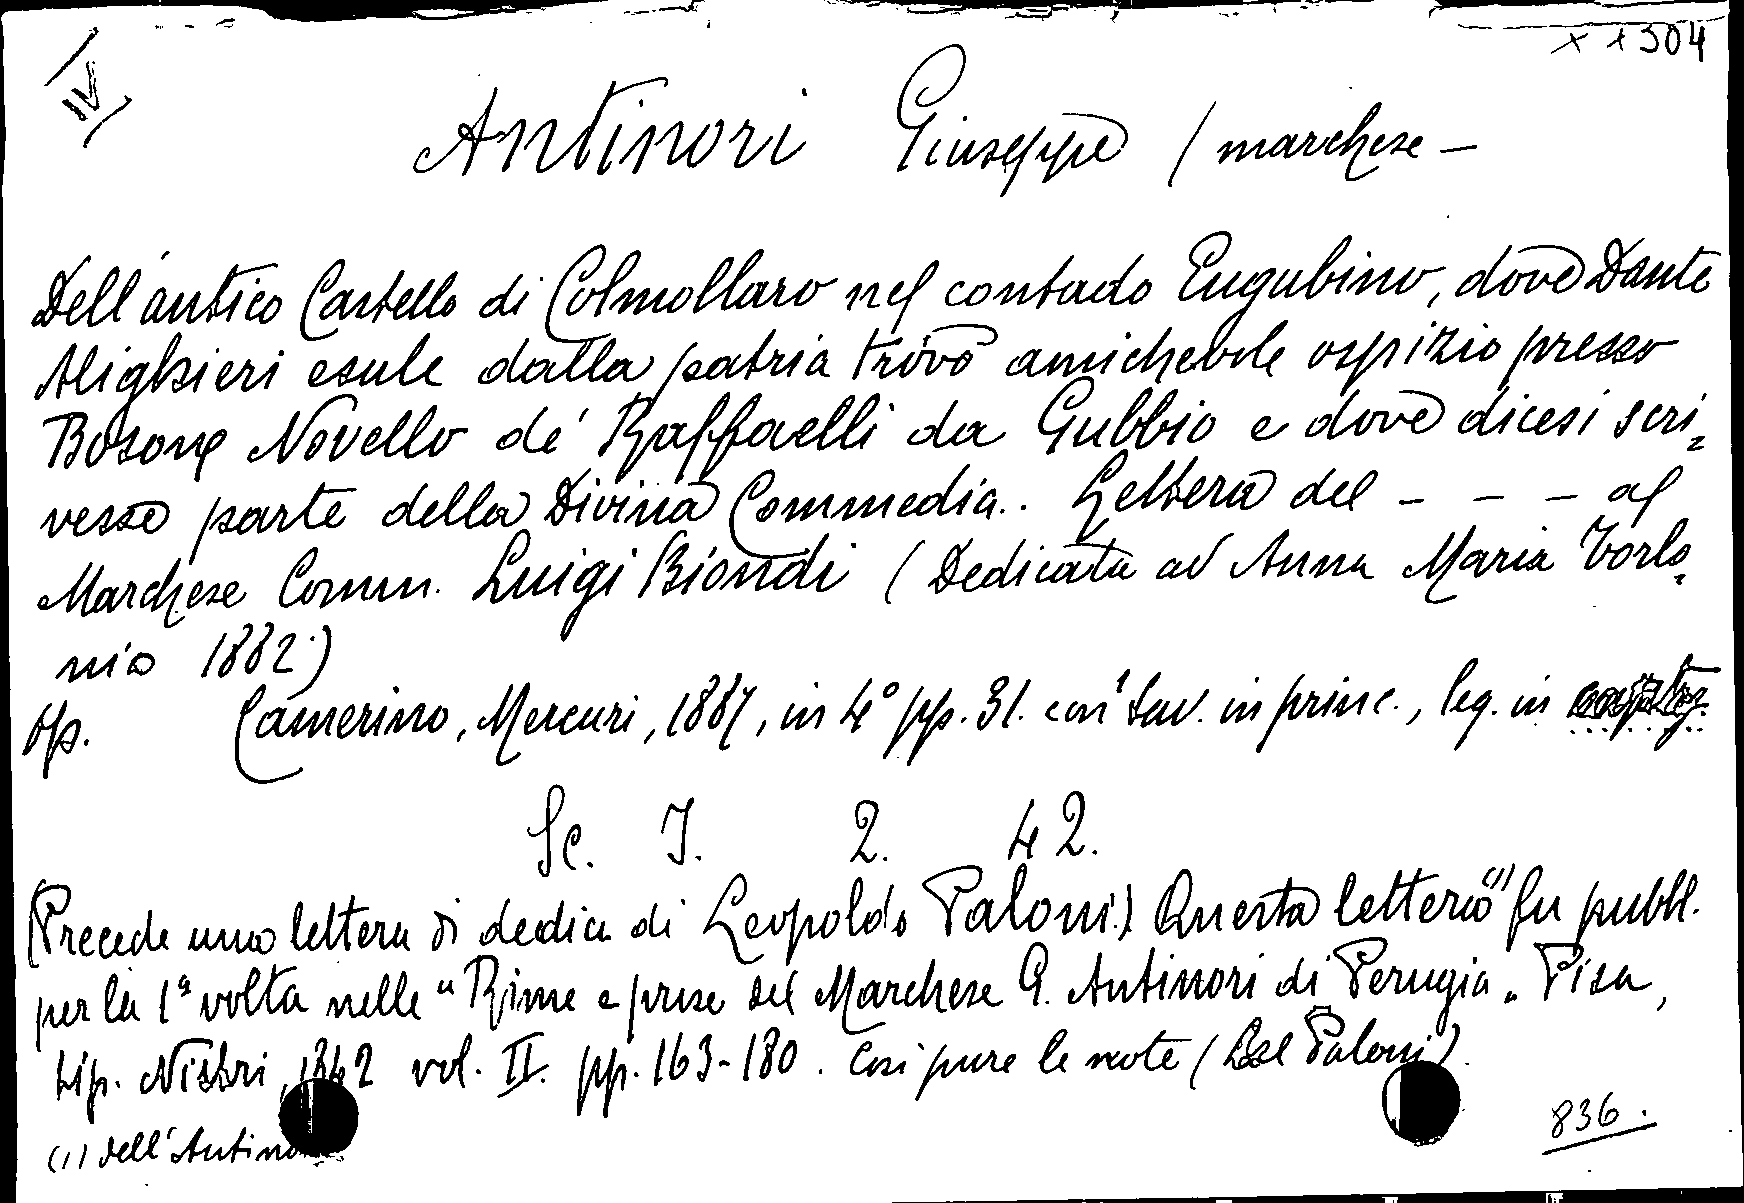 IV
x x 304
Antinori Giuseppe (marchese –
Dell'antico Castello di Colmollaro nel contado Eugubino, dove Dante
Alighieri esule dalla patria trovò amichevole ospizio presso
Bosone Novello de' Raffaelli da Gubbio e dove dicesi scri=
vesse parte della Divina Commedia.. Lettera del – – – al
Marchese Comm. Luigi Biondi (Dedicata ad Anna Maria Torlo=
nia 1882)
Op. Camerino, Mercuri, 1887, in 4° pp. 31. con 1 tav. in princ., leg. in
Sc. I. 2. 42.
(Precede una lettera di dedica di Leopoldo Faloni.) Questa lettera (1) fu pubbl.
per la 1ª volta nelle "Rime e prose del Marchese G. Antinori di Perugia„ Pisa,
tip. Nistri, 1842 vol. II. pp. 163-180. Così pure le note (del Faloni).
(1) dell'Antino
836.